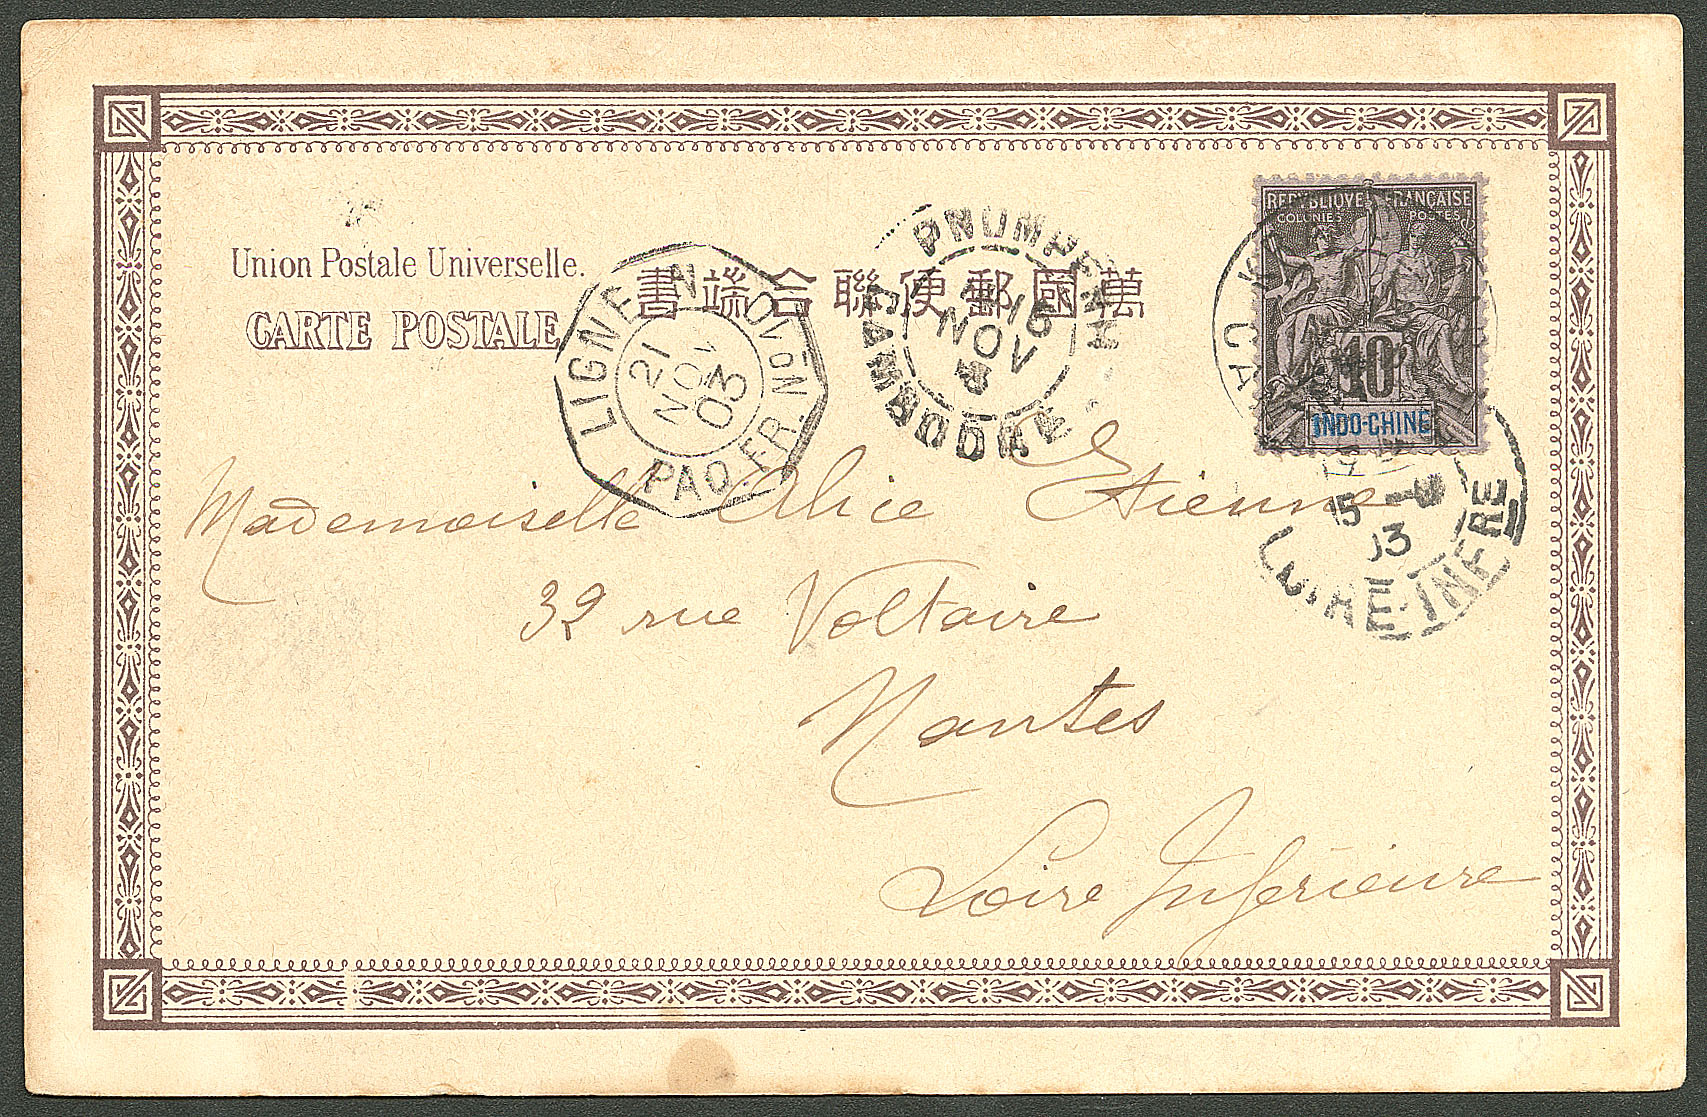 Union Postale Universelle.
CARTE POSTALE
書端合聯便郵國萬
REPUBLIQUE FRANÇAISE
COLONIES POSTES
10
INDO-CHINE
LIGNE N PAQ. FR. No
21
NOV
03
PNOMPENH
15
NOV
CAMBODGE
15
03
LOIRE-INFERE
Mademoiselle Alice Etienne
32 rue Voltaire
Nantes
Loire Inférieure